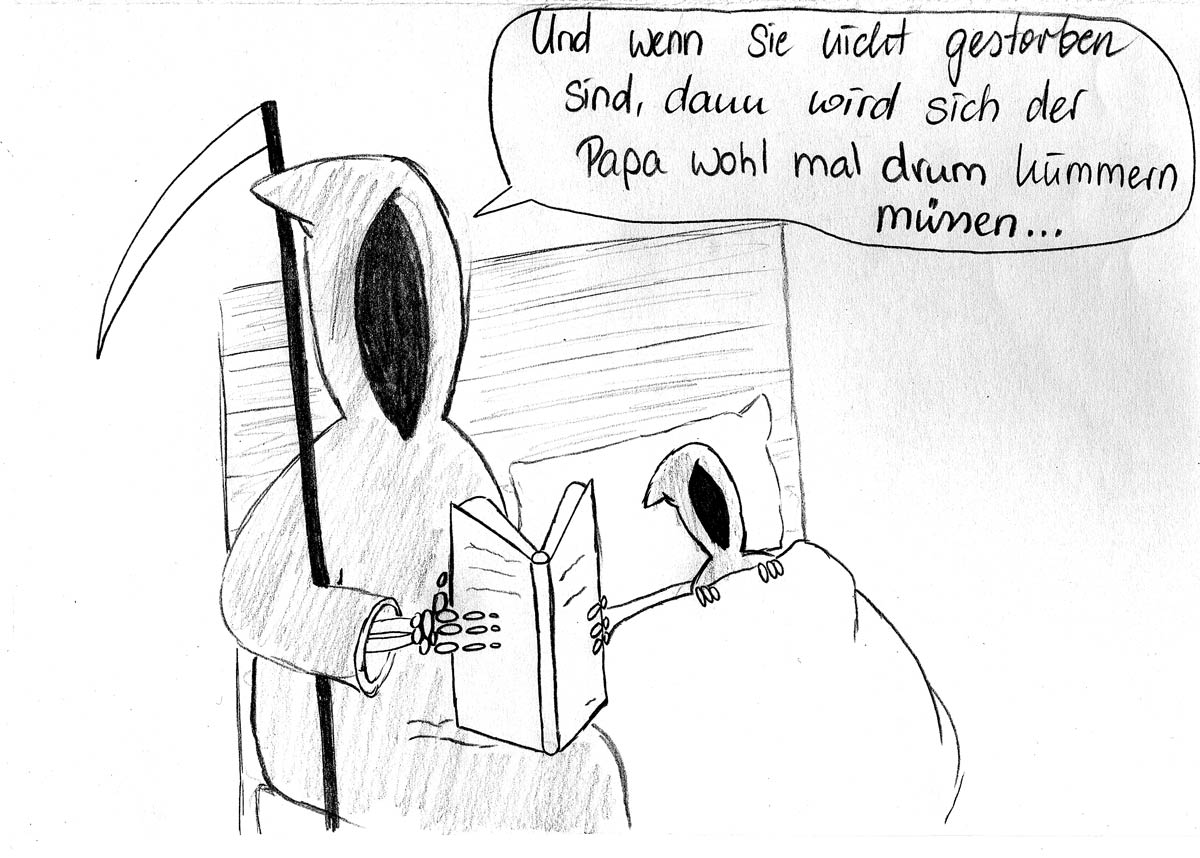 Und wenn Sie nicht gestorben
sind, dann wird sich der
Papa wohl mal drum kümmern
müssen...